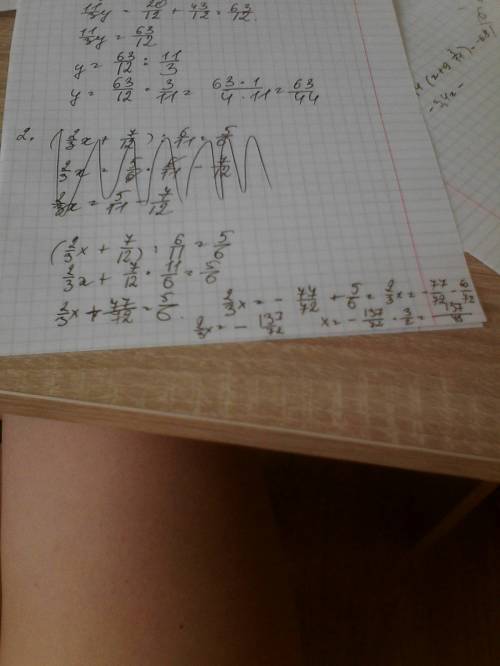 11/3 y = 20/12 + 43/12 = 63/12
11/3 y = 63/12
y = 63/12 : 11/3
y = 63/12 · 3/11 = 63·1/4·11 = 63/44
2. (2/3 x + 7/12) : 6/11 = 5/6
2/3 x = 5/6 · 6/11 - 7/12
2/3 x = 5/11 - 7/12
(2/3 x + 7/12) : 6/11 = 5/6
2/3 x + 7/12 · 11/6 = 5/6
2/3 x + 77/72 = 5/6. 2/3 x = - 77/72 + 5/6 = 2/3 x = - 77/72 - 60/72
2/3 x = - 137/72 x = - 137/72 · 3/2 =